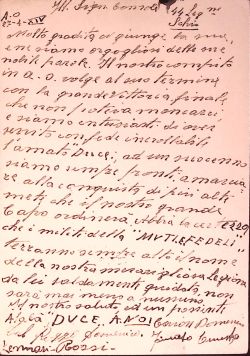 A.O. Ill. Sign. Console
22-4-XIV
Molto gradita ci giunge la sua,
e siamo orgogliosi delle sue
nobili parole. Il nostro compito
in A.O. volge al suo termine
con la grande vittoria finale,
che non poteva mancarci
e siamo entusiasti di aver
servito con fede incrollabile
l'amato Duce, ad un suo cenno
siamo sempre pronti a marcia-
re alla conquista di più alti-
mete che il nostro grande
Capo ordinerà.
che i militi della "MUTI, FEDELI"
terranno sempre alto il nome
della nostra meravigliosa legione
da lei saldamente guidata non
sarà mai meno a nessuno.
il nostro saluto ed un possente
Alalà "DUCE, A NOI"
Rossi